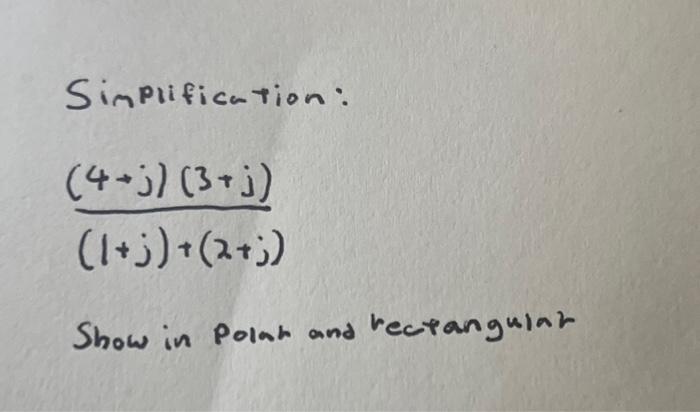 Simplification:
(4+j)(3+j)
(1+j)+(2+j)
Show in Polar and rectangular